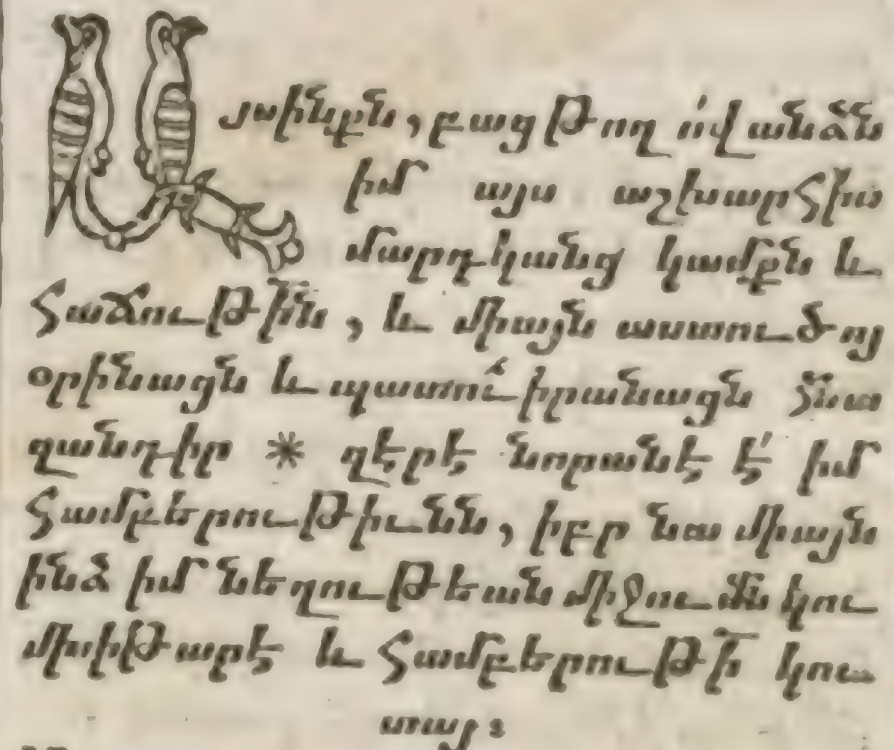 Այսինքն, բաց թող ո՛վ անձն
իմ այս աշխարհիս
մարդկանց կամքն և
հաճութի՟ն, և միայն աստուծոյ
օրինացն և պատո՛ւիրանացն հ՟նա
զանդիր * զերէ նորանէ է՛ իմ
համբերութիւնն, իբր նա միայն
ինձ իմ նեղութեան միջումն կու
մխիթարէ և համբերութի՟ կու
տայ։